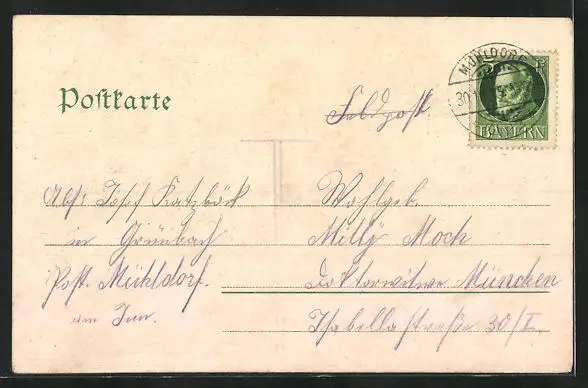 Postkarte
Feldpost.
MÜHLDORF
30
BAYERN
Abs: Josef Katzböck
in Grünbach
Post. Mühldorf.
am Inn.
Wohlgeb.
Milly Moch
Doktorwitwe München
Isabellastraße 30/I